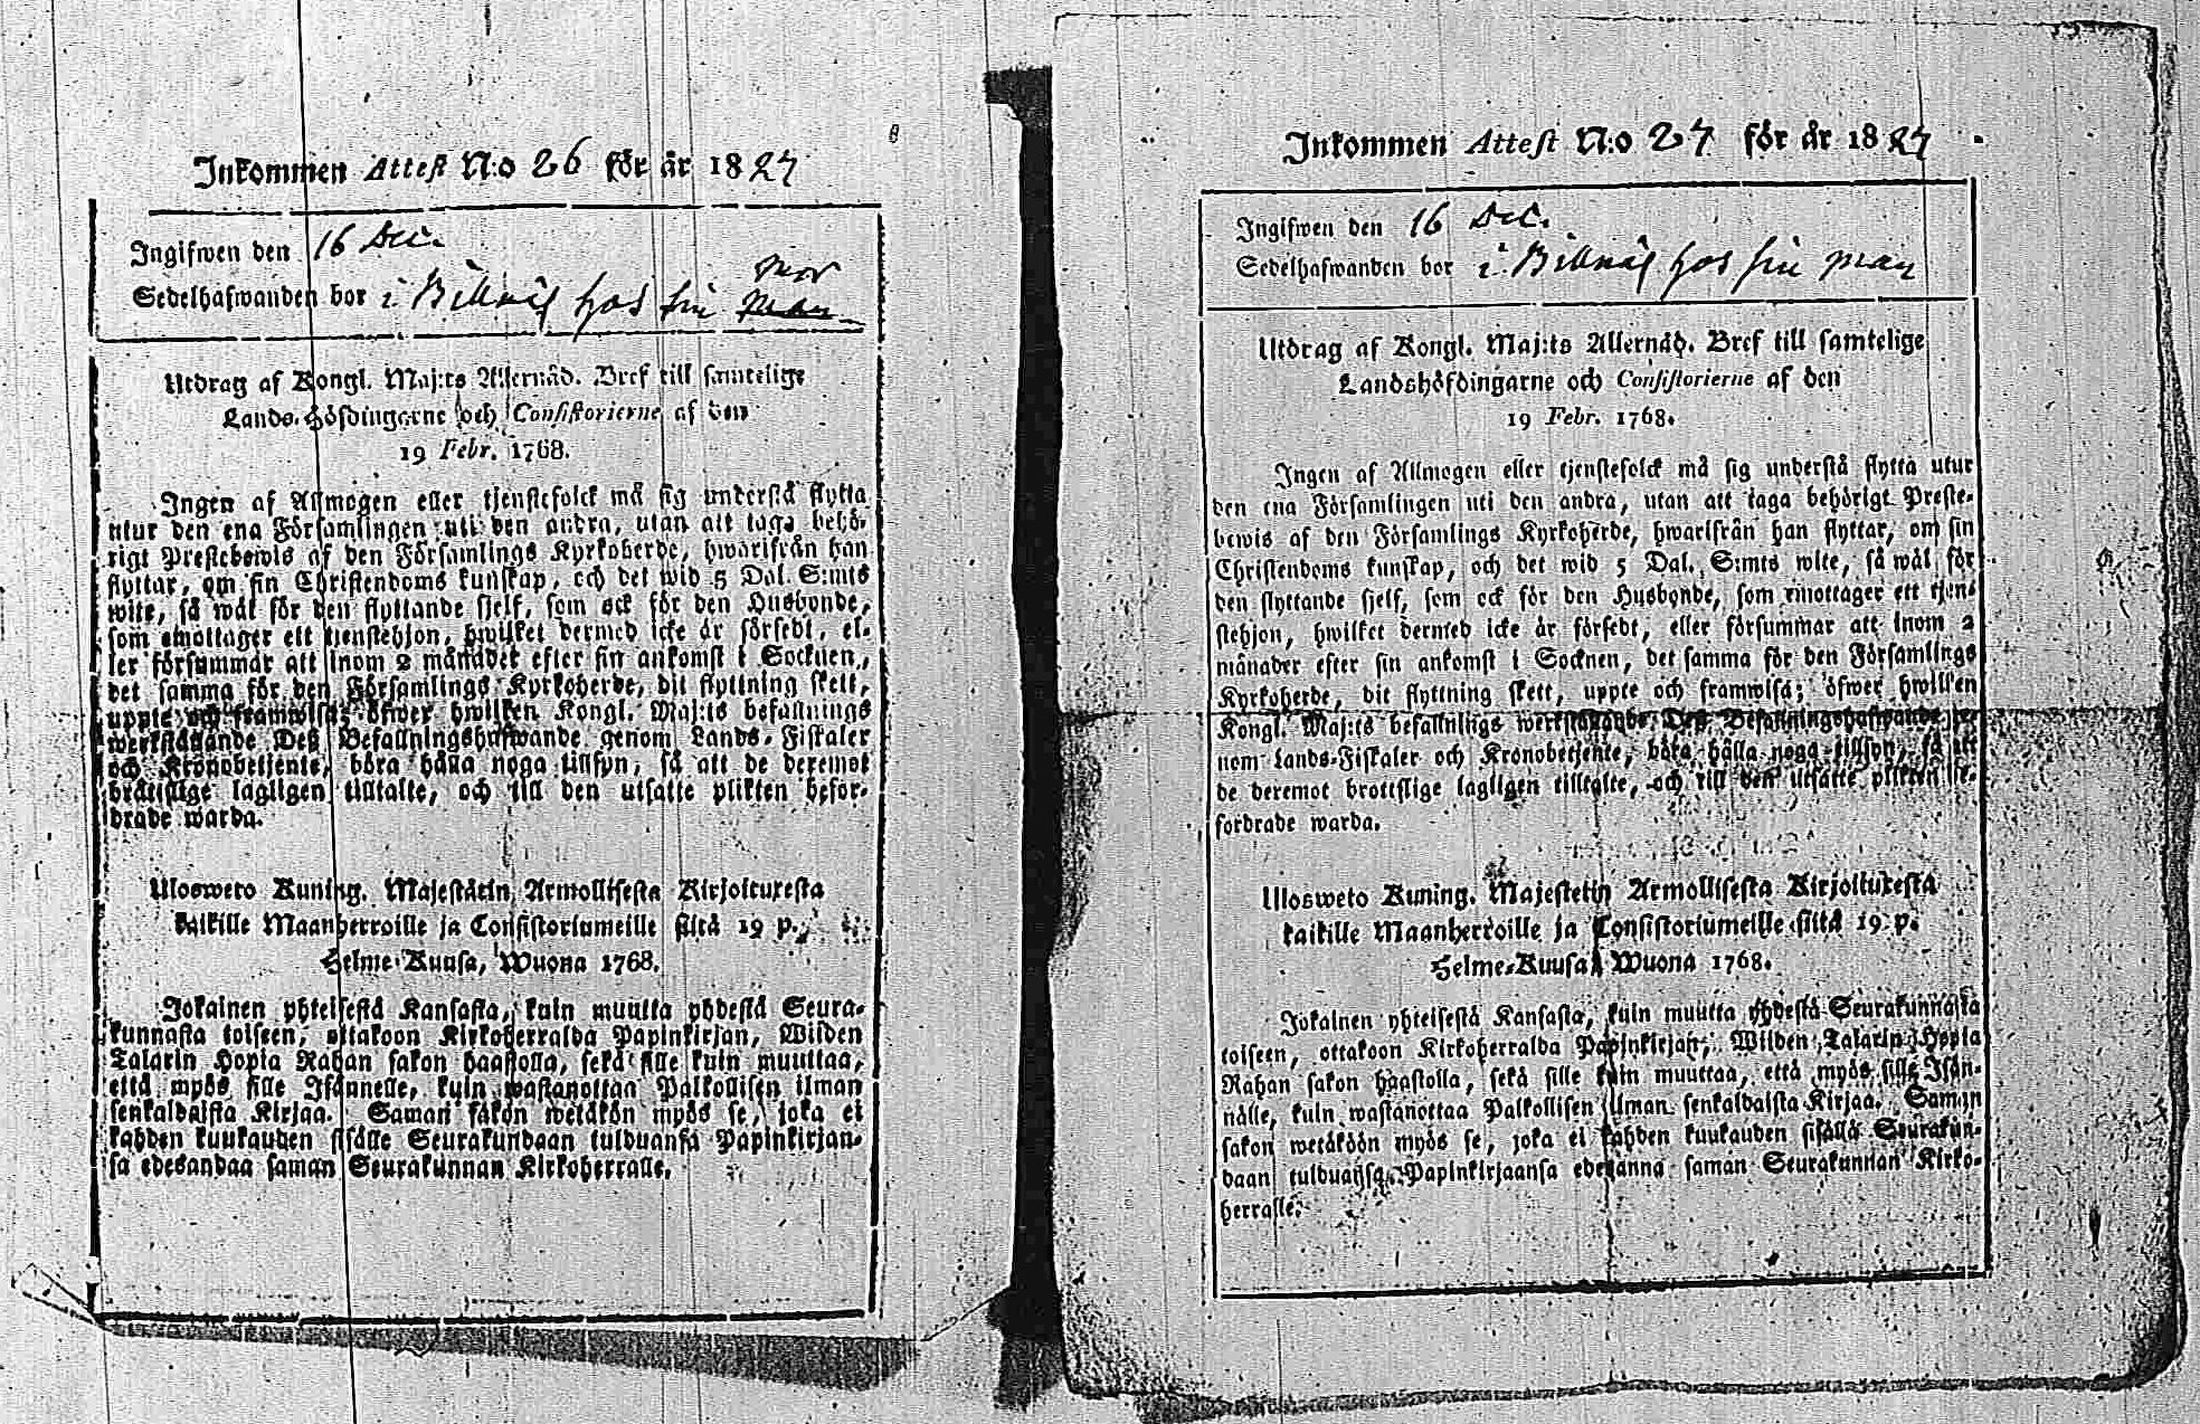 Inkommen Attest N:o 26 för år 1827
Ingifwen den 16 Dec.
mor
Sedelhafwanden bor i Billnäs hos sin man
Utdrag af Kongl. Maj:ts Allernåd. Bref till samtelige
Lands-Höfdingarne och Consistorierne af den
19 Febr. 1768.
Ingen af Allmogen eller tjenstefolck må sig understå flytta
utur den ena Församlingen uti den andra, utan att taga behö-
rigt Prestebewis af den Församlings Kyrkoherde, hwarifrån han
flyttar, om sin Christendoms kunskap, och det wid 5 Dal. S:mts
wite, så wäl för den flyttande sjelf, som ock för den Husbonde,
som emottager ett tjenstehjon, hwilket dermed icke är försedt, el-
ler försummar att inom 2 månader efter sin ankomst i Socknen,
det samma för den Församlings Kyrkoherde, dit flyttning skett,
uppte och framwisa; öfwer hwilken Kongl. Maj:ts befallnings
werkställande Deß Befallningshafwande genom Lands-Fiskaler
och Kronobetjente, böra hålla noga tillsyn, så att de deremot
bråttslige lagligen tilltalte, och till den utsatte plikten befor-
drade warda.
Ulosweto Kuning. Majestätin Armollisesta Kirjoituxesta
kaikille Maanherroille ja Consistoriumeille siitä 19 p.
Helme-Kuusa, Wuona 1768.
Jokainen yhteisestä Kansasta, kuin muutta yhdestä Seura-
kunnasta toiseen, ottakoon Kirkoherralda Papinkirjan, Wiiden
Talarin Hopia Rahan sakon haastolla, sekä sille kuin muuttaa,
että myös sille Isännelle, kuin wastanottaa Palkollisen ilman
senkaldaista Kirjaa. Saman sakon wetäkön myös se, joka ei
kahden kuukauden sisälle Seurakundaan tulduansa Papinkirjan-
sa edesandaa saman Seurakunnan Kirkoherralle.
Inkommen Attest N:o 27 för år 1827
Ingifwen den 16 Dec.
Sedelhafwanden bor i Billnäs hos sin man
Utdrag af Kongl. Maj:ts Allernåd. Bref till samtelige
Landshöfdingarne och Consistorierne af den
19 Febr. 1768.
Ingen af Allmogen eller tjenstefolck må sig understå flytta utur
den ena Församlingen uti den andra, utan att taga behörigt Preste-
bewis af den Församlings Kyrkoherde, hwarifrån han flyttar, om sin
Christendoms kunskap, och det wid 5 Dal. S:mts wite, så wäl för
den flyttande sjelf, som ock för den Husbonde, som emottager ett tjen-
stehjon, hwilket dermed icke är försedt, eller försummar att inom 2
månader efter sin ankomst i Socknen, det samma för den Församlings
Kyrkoherde, dit flyttning skett, uppte och framwisa; öfwer hwilken
Kongl. Maj:ts befallnings werkställande Deß Befallningshafwande ge-
nom Lands-Fiskaler och Kronobetjente, böra hålla noga tillsyn, så att
de deremot brottslige lagligen tilltalte, och till den utsatte plikten be-
fordrade warda.
Ulosweto Kuning. Majestetin Armollisesta Kirjoituxesta
kaikille Maanherroille ja Consistoriumeille siitä 19 p.
Helme-Kuusa Wuona 1768.
Jokainen yhteisestä Kansasta, kuin muutta yhdestä Seurakunnasta
toiseen, ottakoon Kirkoherralda Papinkirjan, Wiiden Talarin Hopia
Rahan sakon haastolla, sekä sille kuin muuttaa, että myös sille Isän-
nälle, kuin wastanottaa Palkollisen ilman senkaldaista Kirjaa. Saman
sakon wetäköön myös se, joka ei kahden kuukauden sisällä Seurakun-
daan tulduansa Papinkirjaansa edesanna saman Seurakunnan Kirko-
herralle.